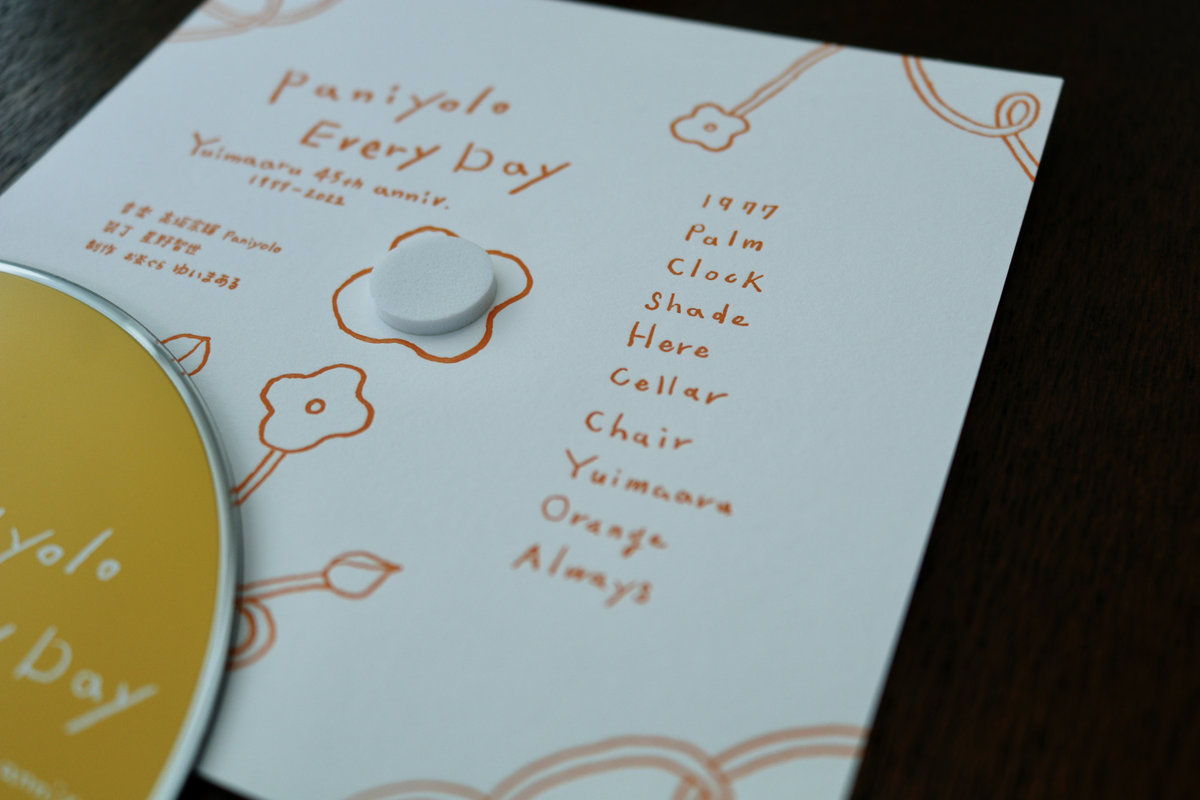 Paniyolo
Every Day
Yuimaaru 45th anniv.
1977-2022
音楽 高坂宗輝 Paniyolo
装丁 星野智世
制作 お茶ぐら ゆいまある
1977
Palm
Clock
Shade
Here
Cellar
Chair
Yuimaaru
Orange
Always
yolo
Day